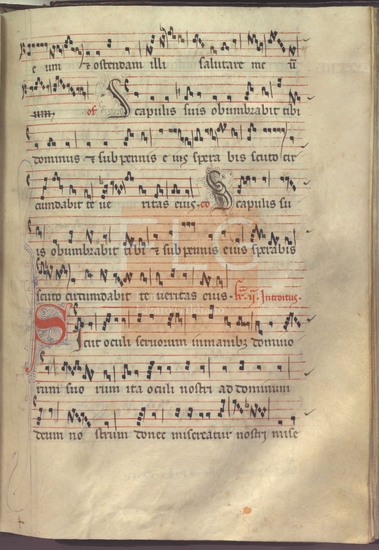 e um & ostendam illi salutare me ū
um; of Scapulis suis obumbrabit tibi
dominus & sub pennis e ius spera bis scuto cir
cumdabit te ue ritas eius. co Scapulis su
is obumbrabit ti bi & sub pennis eius sperabis
scuto circumdabit te ueritas eius. Introitus.
Sicut oculi seruorum in manibꝫ domino
rum suo rum ita oculi nostri ad dominum
deum no strum donec misereatur nostri mise